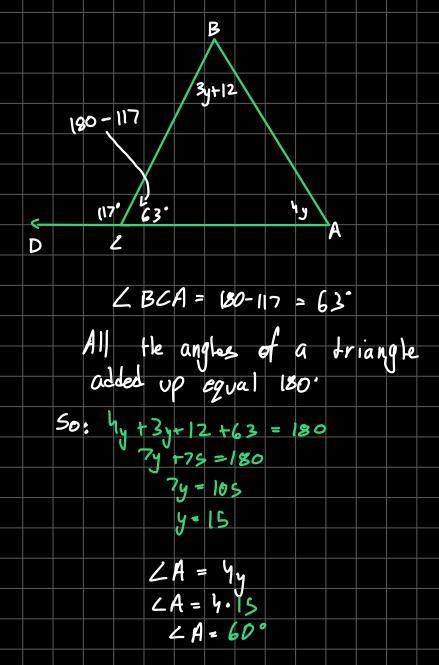 B
3y+12
180-117
117°
63°
4y
D
C
A
∠BCA = 180-117 = 63°
All the angles of a triangle
added up equal 180°
So: 4y + 3y + 12 + 63 = 180
7y + 75 = 180
7y = 105
y = 15
∠A = 4y
∠A = 4·15
∠A = 60°